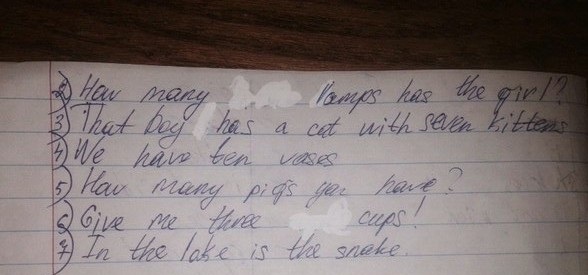 2) How many lamps has the girl?
3) That boy has a cat with seven kittens
4) We have ten vases
5) How many pigs you have?
6) Give me three cups!
7) In the lake is the snake.